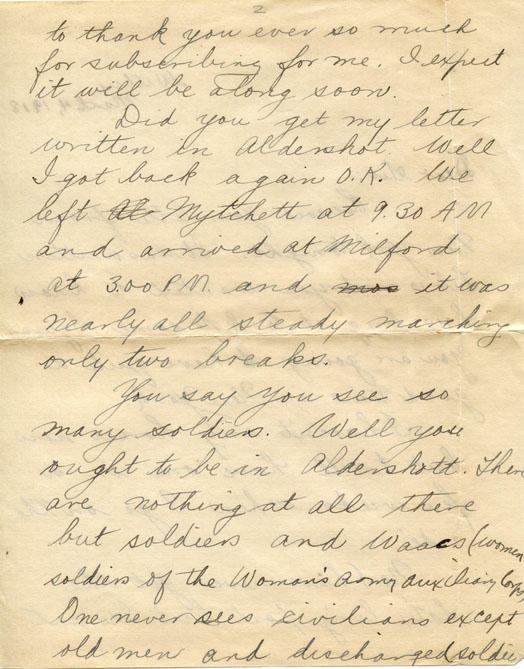 2
to thank you ever so much
for subscribing for me. I expect
it will be along soon.
Did you get my letter
written in Aldershot. Well
I got back again O.K. We
left At Mytchett at 9.30 AM
and arrived at Milford
at 3.00 P.M. and mos it was
nearly all steady marching
only two breaks.
You say you see so
many soldiers. Well you
ought to be in Aldershott. There
are nothing at all there
but soldiers and Waacs (women
soldiers of the Woman's army auxiliary Corps)
One never sees civilians except
old men and discharged soldie